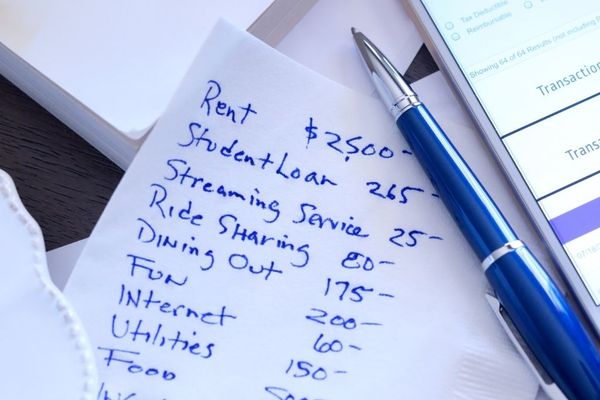 Rent $2,500-
Student Loan 265-
Streaming Service 25-
Ride Sharing 80-
Dining Out 175-
Fun 200-
Internet 60-
Utilities 150-
Food
Tax Deductible
Reimbursable
Showing 64 of 64 Results (not including
Transaction
Trans